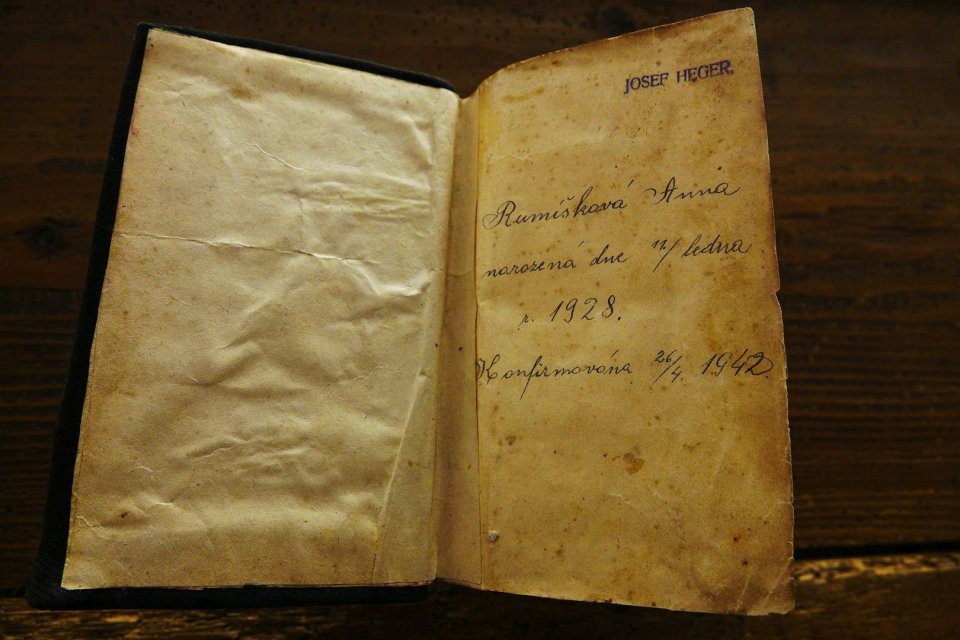 JOSEF HEGER.
Rumíšková Anna
narozená dne 11/ ledna
r. 1928.
Konfirmována 26/4. 1942.